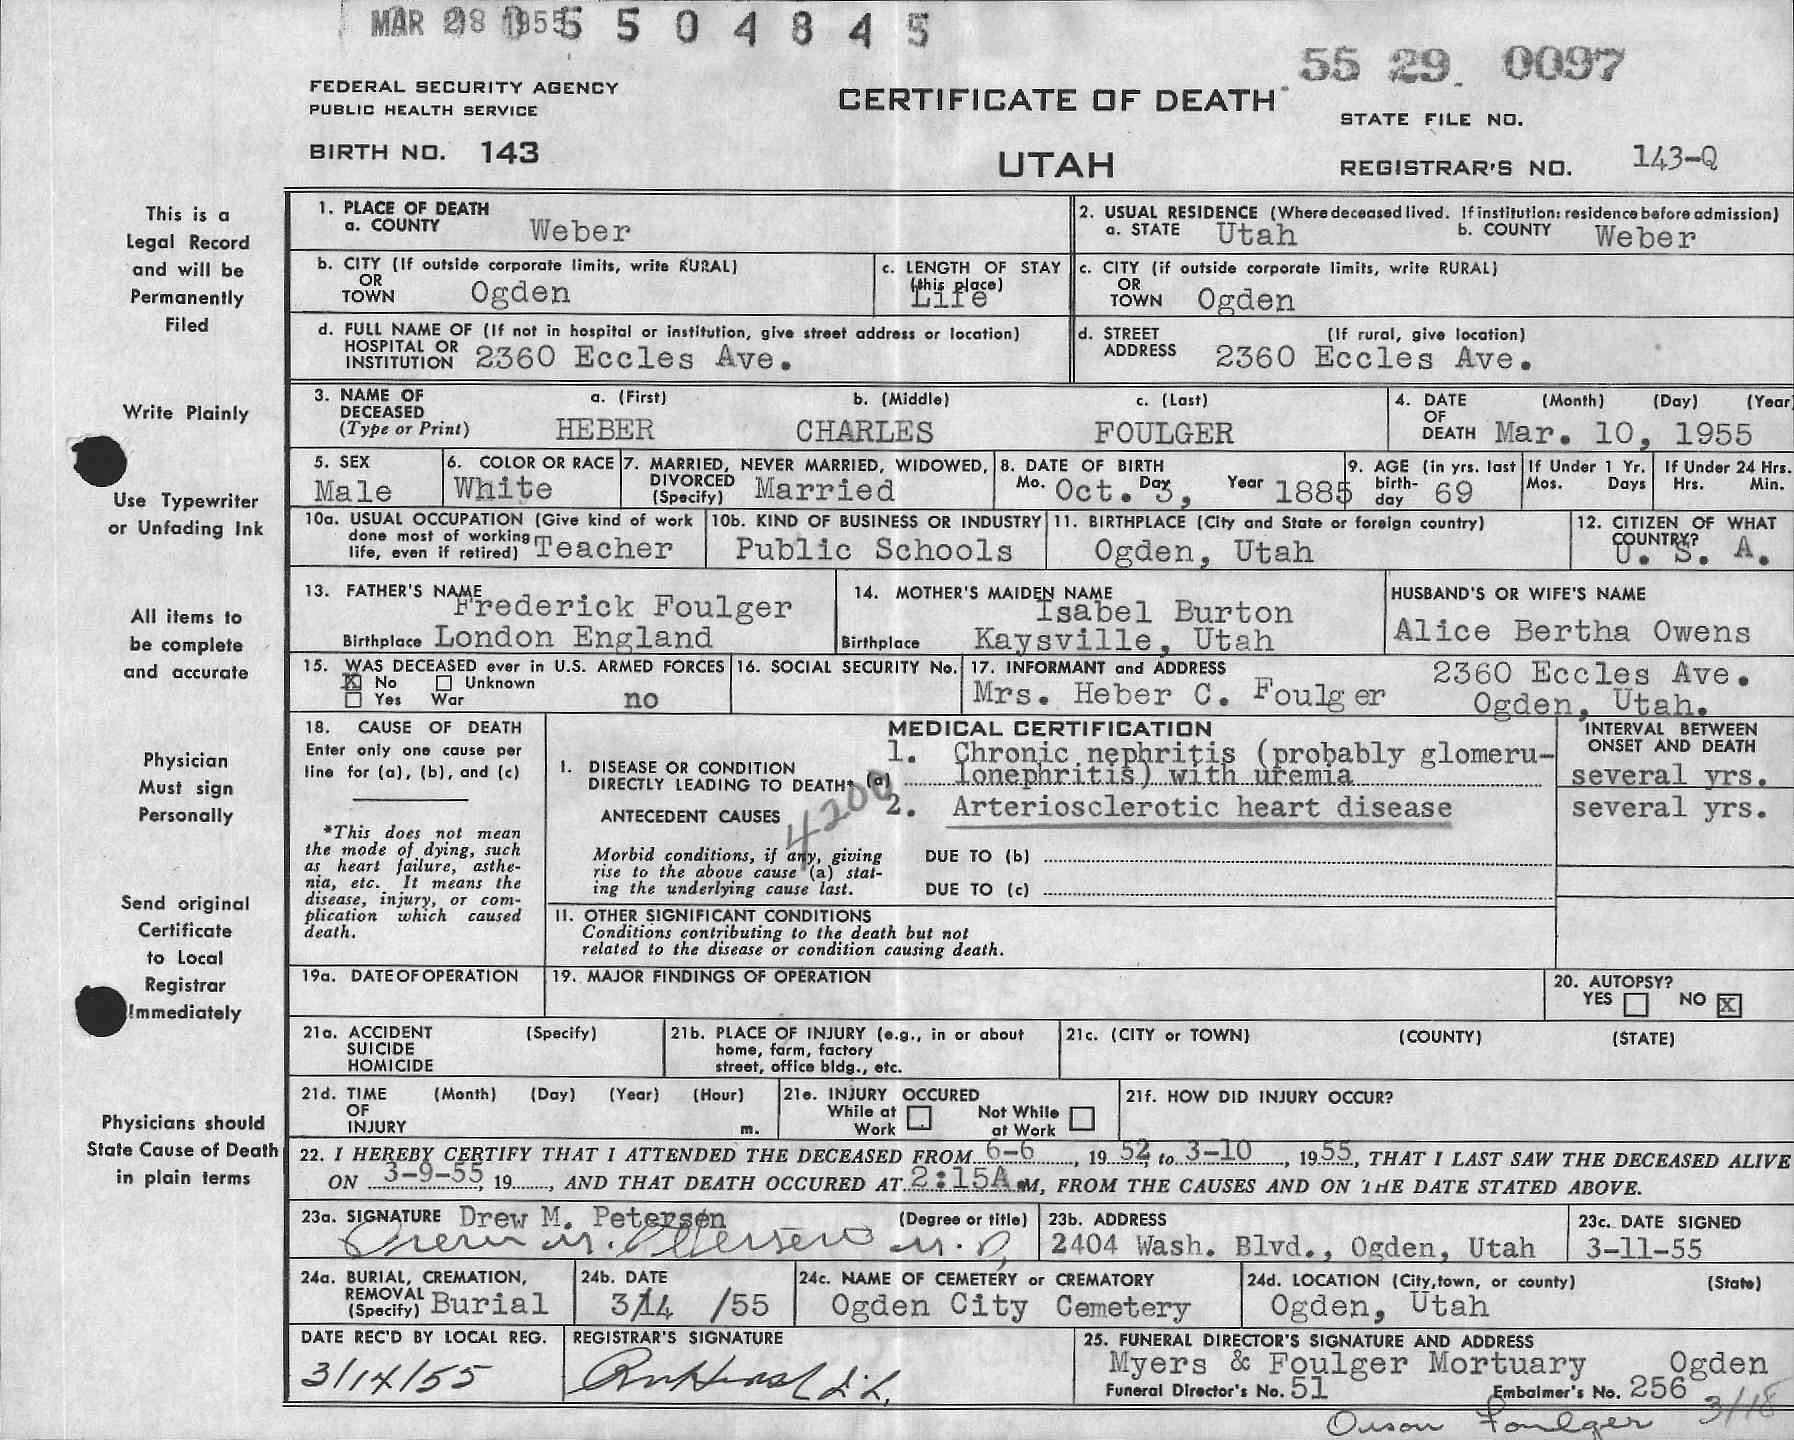 MAR 28 1955 5 5 0 4 8 4 5
55 29 0097
FEDERAL SECURITY AGENCY
PUBLIC HEALTH SERVICE
CERTIFICATE OF DEATH
STATE FILE NO.
BIRTH NO. 143
UTAH
REGISTRAR'S NO. 143-Q
This is a
Legal Record
and will be
Permanently
Filed
Write Plainly
Use Typewriter
or Unfading Ink
All items to
be complete
and accurate
Physician
Must sign
Personally
Send original
Certificate
to Local
Registrar
Immediately
Physicians should
State Cause of Death
in plain terms
1. PLACE OF DEATH
a. COUNTY Weber
2. USUAL RESIDENCE (Where deceased lived. If institution: residence before admission)
a. STATE Utah b. COUNTY Weber
b. CITY (If outside corporate limits, write RURAL)
OR
TOWN Ogden
c. LENGTH OF STAY
(this place)
Life
c. CITY (if outside corporate limits, write RURAL)
OR
TOWN Ogden
d. FULL NAME OF (If not in hospital or institution, give street address or location)
HOSPITAL OR
INSTITUTION 2360 Eccles Ave.
d. STREET (If rural, give location)
ADDRESS 2360 Eccles Ave.
3. NAME OF
DECEASED
(Type or Print)
a. (First) b. (Middle) c. (Last)
HEBER CHARLES FOULGER
4. DATE (Month) (Day) (Year)
OF
DEATH Mar. 10, 1955
5. SEX
Male
6. COLOR OR RACE
White
7. MARRIED, NEVER MARRIED, WIDOWED,
DIVORCED
(Specify) Married
8. DATE OF BIRTH
Mo. Oct. Day 3, Year 1885
9. AGE (in yrs. last
birth-
day 69
If Under 1 Yr.
Mos. Days
If Under 24 Hrs.
Hrs. Min.
10a. USUAL OCCUPATION (Give kind of work
done most of working
life, even if retired) Teacher
10b. KIND OF BUSINESS OR INDUSTRY
Public Schools
11. BIRTHPLACE (City and State or foreign country)
Ogden, Utah
12. CITIZEN OF WHAT
COUNTRY?
U. S. A.
13. FATHER'S NAME
Frederick Foulger
Birthplace London England
14. MOTHER'S MAIDEN NAME
Isabel Burton
Birthplace Kaysville, Utah
HUSBAND'S OR WIFE'S NAME
Alice Bertha Owens
15. WAS DECEASED ever in U.S. ARMED FORCES
X No Unknown
Yes War no
16. SOCIAL SECURITY No.
17. INFORMANT and ADDRESS
Mrs. Heber C. Foulger
2360 Eccles Ave.
Ogden, Utah.
18. CAUSE OF DEATH
Enter only one cause per
line for (a), (b), and (c)
*This does not mean
the mode of dying, such
as heart failure, asthe-
nia, etc. It means the
disease, injury, or com-
plication which caused
death.
MEDICAL CERTIFICATION
I. DISEASE OR CONDITION
DIRECTLY LEADING TO DEATH* (a)
1. Chronic nephritis (probably glomeru-
lonephritis) with uremia
INTERVAL BETWEEN
ONSET AND DEATH
several yrs.
ANTECEDENT CAUSES
4200
2. Arteriosclerotic heart disease
several yrs.
Morbid conditions, if any, giving
rise to the above cause (a) stat-
ing the underlying cause last.
DUE TO (b)
DUE TO (c)
II. OTHER SIGNIFICANT CONDITIONS
Conditions contributing to the death but not
related to the disease or condition causing death.
19a. DATE OF OPERATION
19. MAJOR FINDINGS OF OPERATION
20. AUTOPSY?
YES NO X
21a. ACCIDENT (Specify)
SUICIDE
HOMICIDE
21b. PLACE OF INJURY (e.g., in or about
home, farm, factory
street, office bldg., etc.
21c. (CITY or TOWN) (COUNTY) (STATE)
21d. TIME (Month) (Day) (Year) (Hour)
OF
INJURY m.
21e. INJURY OCCURED
While at
Work
Not While
at Work
21f. HOW DID INJURY OCCUR?
22. I HEREBY CERTIFY THAT I ATTENDED THE DECEASED FROM 6-6, 19 52, to 3-10, 1955, THAT I LAST SAW THE DECEASED ALIVE
ON 3-9-55, 19......, AND THAT DEATH OCCURED AT 2:15A.M, FROM THE CAUSES AND ON THE DATE STATED ABOVE.
23a. SIGNATURE Drew M. Petersen (Degree or title)
Drew M. Petersen M.D,
23b. ADDRESS
2404 Wash. Blvd., Ogden, Utah
23c. DATE SIGNED
3-11-55
24a. BURIAL, CREMATION,
REMOVAL
(Specify) Burial
24b. DATE
3/14 /55
24c. NAME OF CEMETERY or CREMATORY
Ogden City Cemetery
24d. LOCATION (City, town, or county) (State)
Ogden, Utah
DATE REC'D BY LOCAL REG.
3/14/55
REGISTRAR'S SIGNATURE
25. FUNERAL DIRECTOR'S SIGNATURE AND ADDRESS
Myers & Foulger Mortuary Ogden
Funeral Director's No. 51 Embalmer's No. 256
Orson Foulger 3/18